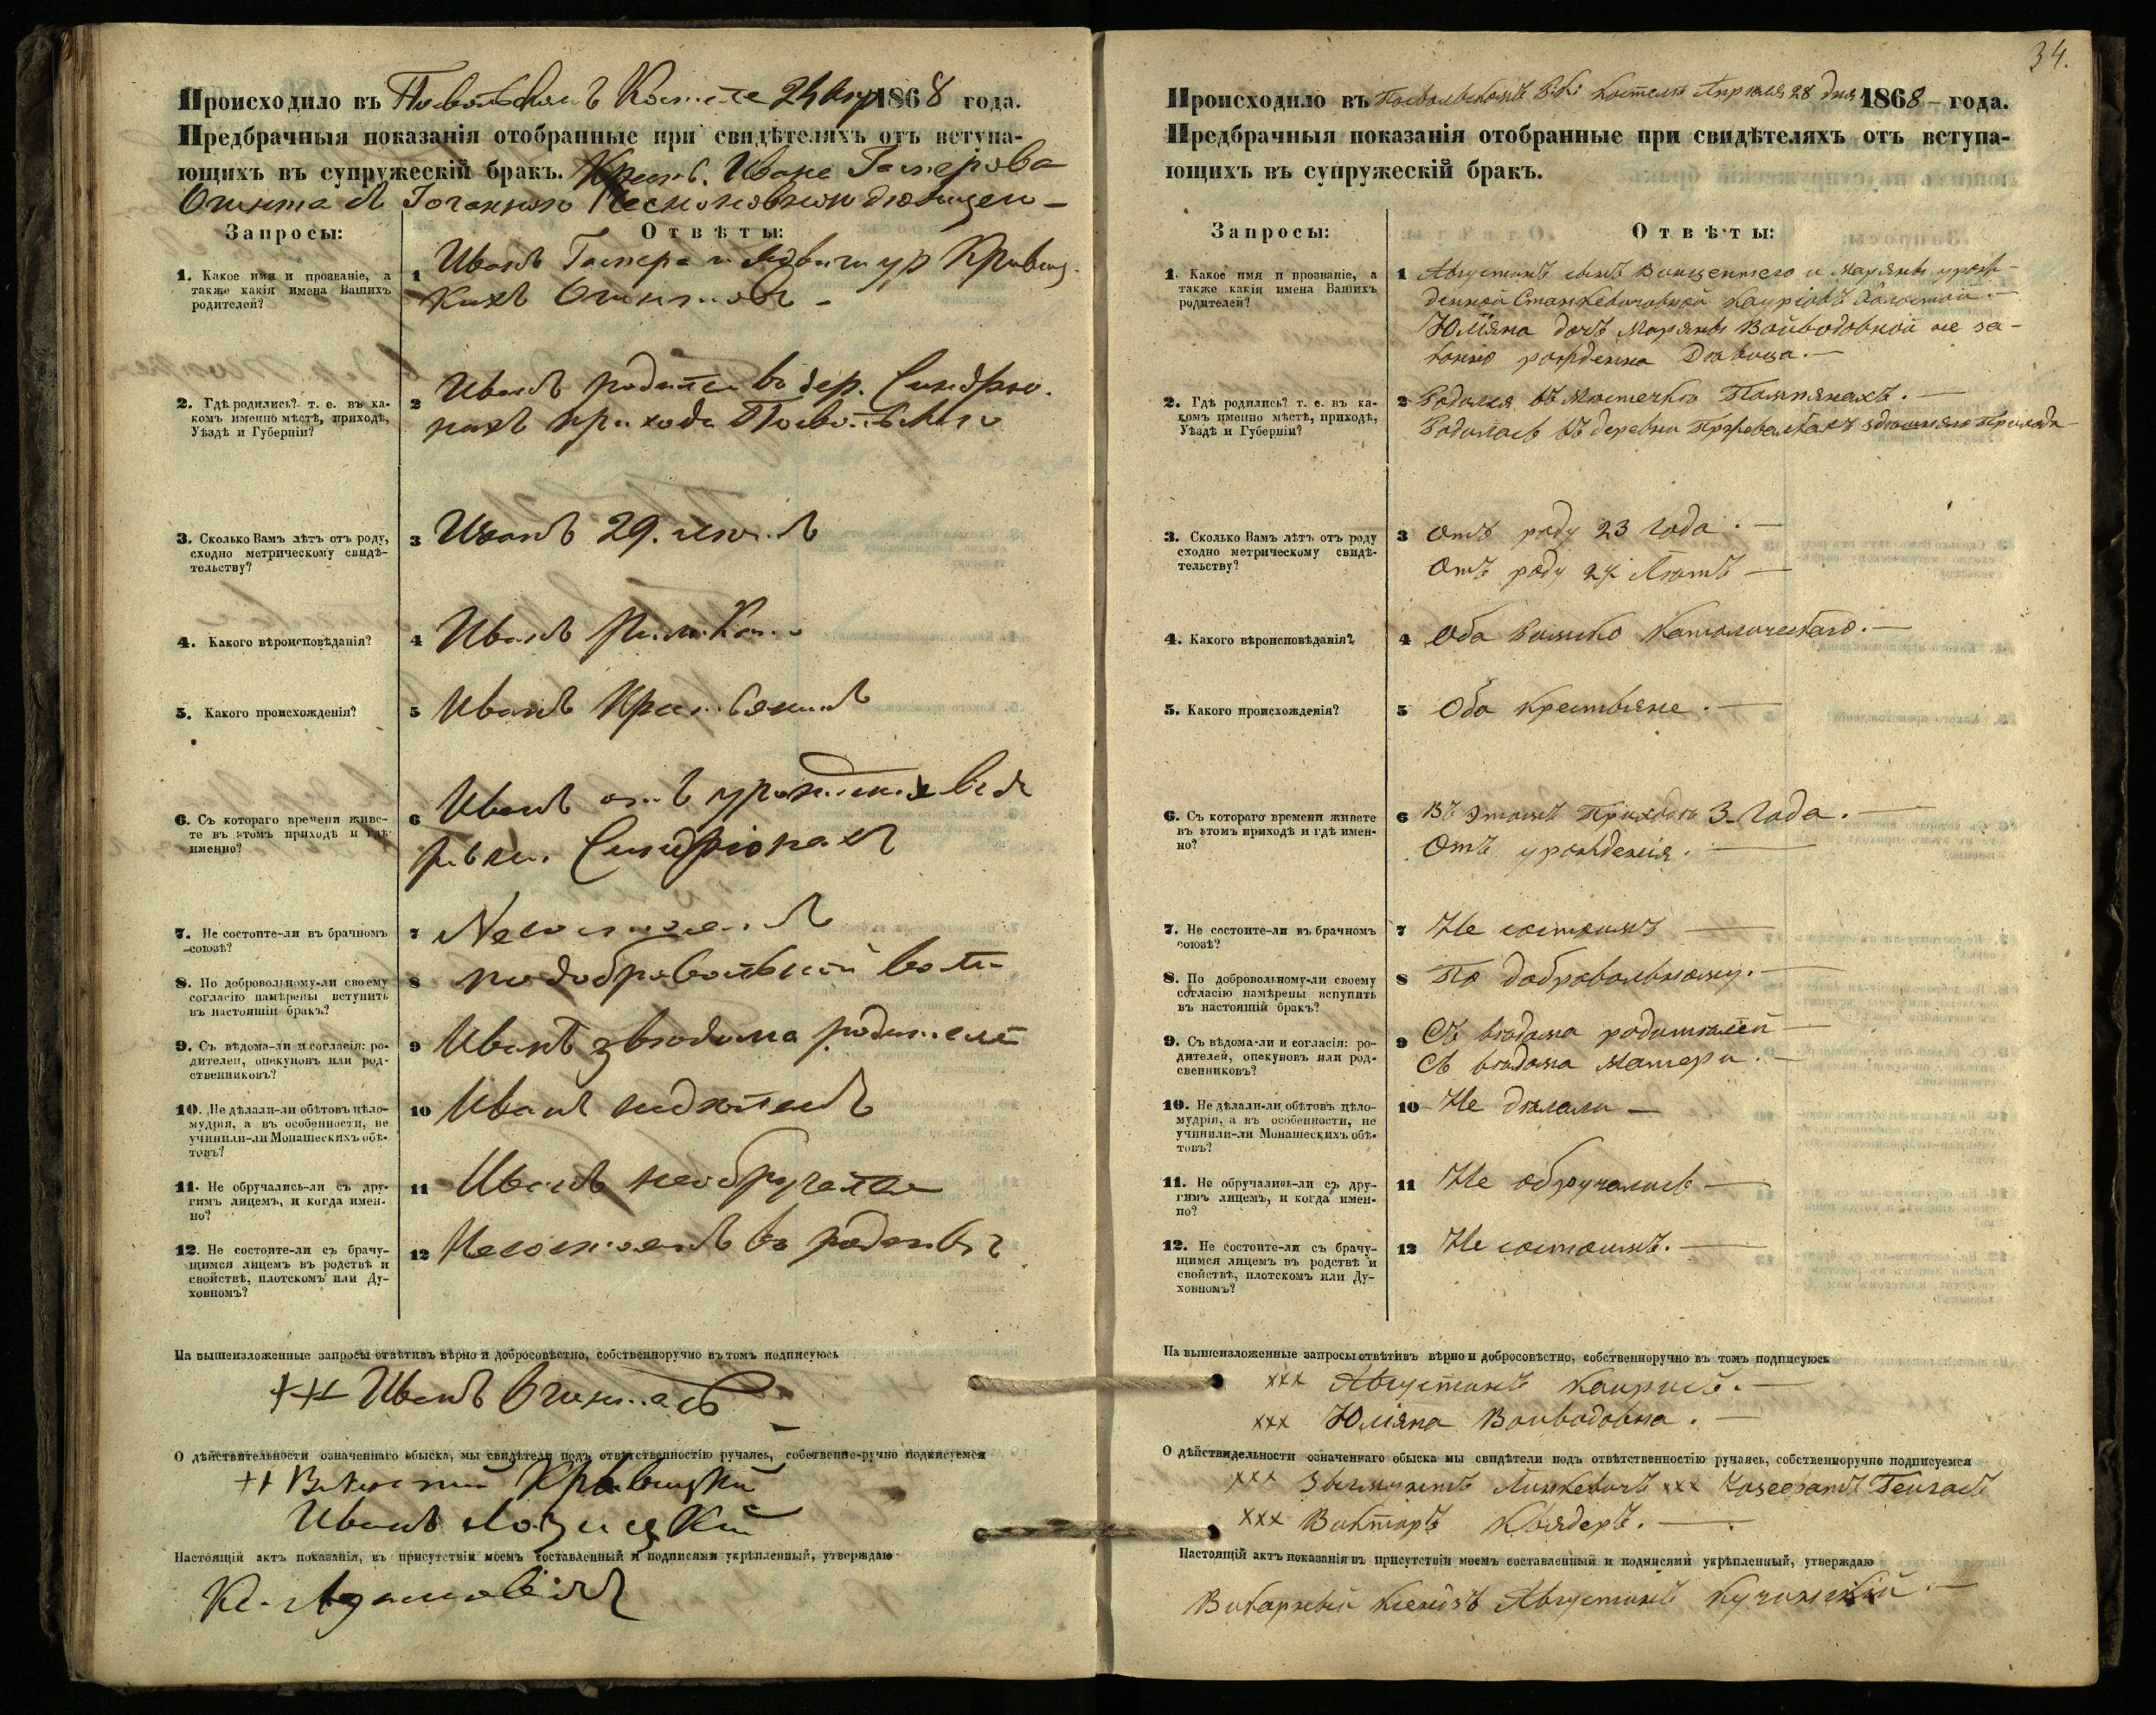 Происходило въ Посвольскомъ Костеле 24 Апр 1868 года.
Предбрачныя показанія отобранные при свидѣтеляхъ отъ вступа-
ющихъ въ супружескій бракъ. Крест. Иване Гаспероваͺ
Запросы:
Отвѣты:
1. Какое имя и прозваніе, а
также какія имена Вашихъ
родителей?
1 Иванъ Гаспера и ур Кривиц-
кихъ
2. Гдѣ родились? т. е. въ ка-
комъ именно мѣстѣ, приходѣ,
Уѣздѣ и Губерніи?
2 Иванъ родился въ дер.
прихода Посвольскаго
3. Сколько Вамъ лѣтъ отъ роду,
сходно метрическому свидѣ-
тельству?
3 Иванъ 29. летъ
4. Какого вѣроисповѣданія?
4 Иванъ Рим. Кат.
5. Какого происхожденія?
5 Иванъ Крестьянинъ
6. Съ котораго времени живе-
те въ этомъ приходѣ и гдѣ
именно?
6 Иванъ отъ урожденія въ
7. Не состоите-ли въ брачномъ
союзѣ?
7 Несостоялъ
8. По добровольному-ли своему
согласію намѣрены вступить
въ настоящій бракъ?
8 по добровольной воли
9. Съ вѣдома-ли и согласія: ро-
дителей, опекуновъ или род-
ственниковъ?
9 Иванъ зъ ведома родителей
10. Не дѣлали-ли обѣтовъ цѣло-
мудрія, а въ особенности, не
учинили-ли Монашескихъ обѣ-
товъ?
10 Иванъ недѣлалъ
11. Не обручались-ли съ дру-
гимъ лицемъ, и когда имен-
но?
11 Иванъ необручался
12. Не состоите-ли съ брачу-
щимся лицемъ въ родствѣ и
свойствѣ, плотскомъ или Ду-
ховномъ?
12 Несостоялъ въ родстве
На вышеизложенные запросы отвѣтивъ вѣрно и добросовѣстно, собственноручно въ томъ подписуюсь
+++ Иванъ
О дѣйствительности означеннаго обыска, мы свидѣтели подъ отвѣтственностію ручаясь, собственно-ручно подписуемся
++ Кривицкий
Иванъ
Настоящій актъ показанія, въ присутствіи моемъ составленный и подписями укрѣпленный, утверждаю
34.
Происходило въ Посвольскомъ Р.К. костеле Апреля 28 дня 1868 - года.
Предбрачныя показанія отобранные при свидѣтеляхъ отъ вступа-
ющихъ въ супружескій бракъ.
Запросы:
Отвѣты:
1. Какое имя и прозваніе, а
также какія имена Вашихъ
родителей?
1 Августинъ сынъ Винцентего и Марянны урож-
денной Станкевичовной Каурісъ Холостой. —
Юліяна дочъ Марянны Войводовной не за-
конно рожденна Девица. —
2. Гдѣ родились? т. е. въ ка-
комъ именно мѣстѣ, приходѣ,
Уѣздѣ и Губерніи?
2 Родился въ местечке Помпянахъ. —
Родилась въ деревни здешняго Прихода
3. Сколько Вамъ лѣтъ отъ роду
сходно метрическому свидѣ-
тельству?
3 Отъ роду 23 года. —
Отъ роду 24 летъ —
4. Какого вѣроисповѣданія?
4 Оба Римско Католическаго. —
5. Какого происхожденія?
5 Оба Крестьяне. —
6. Съ котораго времени живете
въ этомъ приходѣ и гдѣ имен-
но?
6 Въ этомъ Приходе 3. года. —
Отъ урожденія. —
7. Не состоите-ли въ брачномъ
союзѣ?
7 Не состоимъ —
8. По добровольному-ли своему
согласію намѣрены вступить
въ настоящій бракъ?
8 По добровольному. —
9. Съ вѣдома-ли и согласія: ро-
дителей, опекуновъ или род-
свенниковъ?
9 Съ ведома родителей —
Съ ведома матери. —
10. Не дѣлали-ли обѣтовъ цѣло-
мудрія, а въ особенности, не
учинили-ли Монашескихъ обѣ-
товъ?
10 Не делали —
11. Не обручались-ли съ дру-
гимъ лицемъ, и когда имен-
но?
11 Не обручались —
12. Не состоите-ли съ брачу-
щимся лицемъ въ родствѣ и
свойствѣ, плотскомъ или Ду-
ховномъ?
12 Не состоимъ. —
На вышеизложенные запросы отвѣтивъ вѣрно и добросовѣстно, собственноручно въ томъ подписуюсь
xxx Августинъ Каурисъ. —
xxx Юліяна Войводовна. —
О дѣйствидельности означеннаго обыска мы свидѣтели подъ отвѣтственностію ручаясь, собственноручно подписуемся
xxx xxx
xxx Викторъ Квядеръ. —
Настоящій актъ показанія въ присутствіи моемъ составленный и подписями укрѣпленный, утверждаю
Викарный Ксендзъ Августинъ Кучинскій —